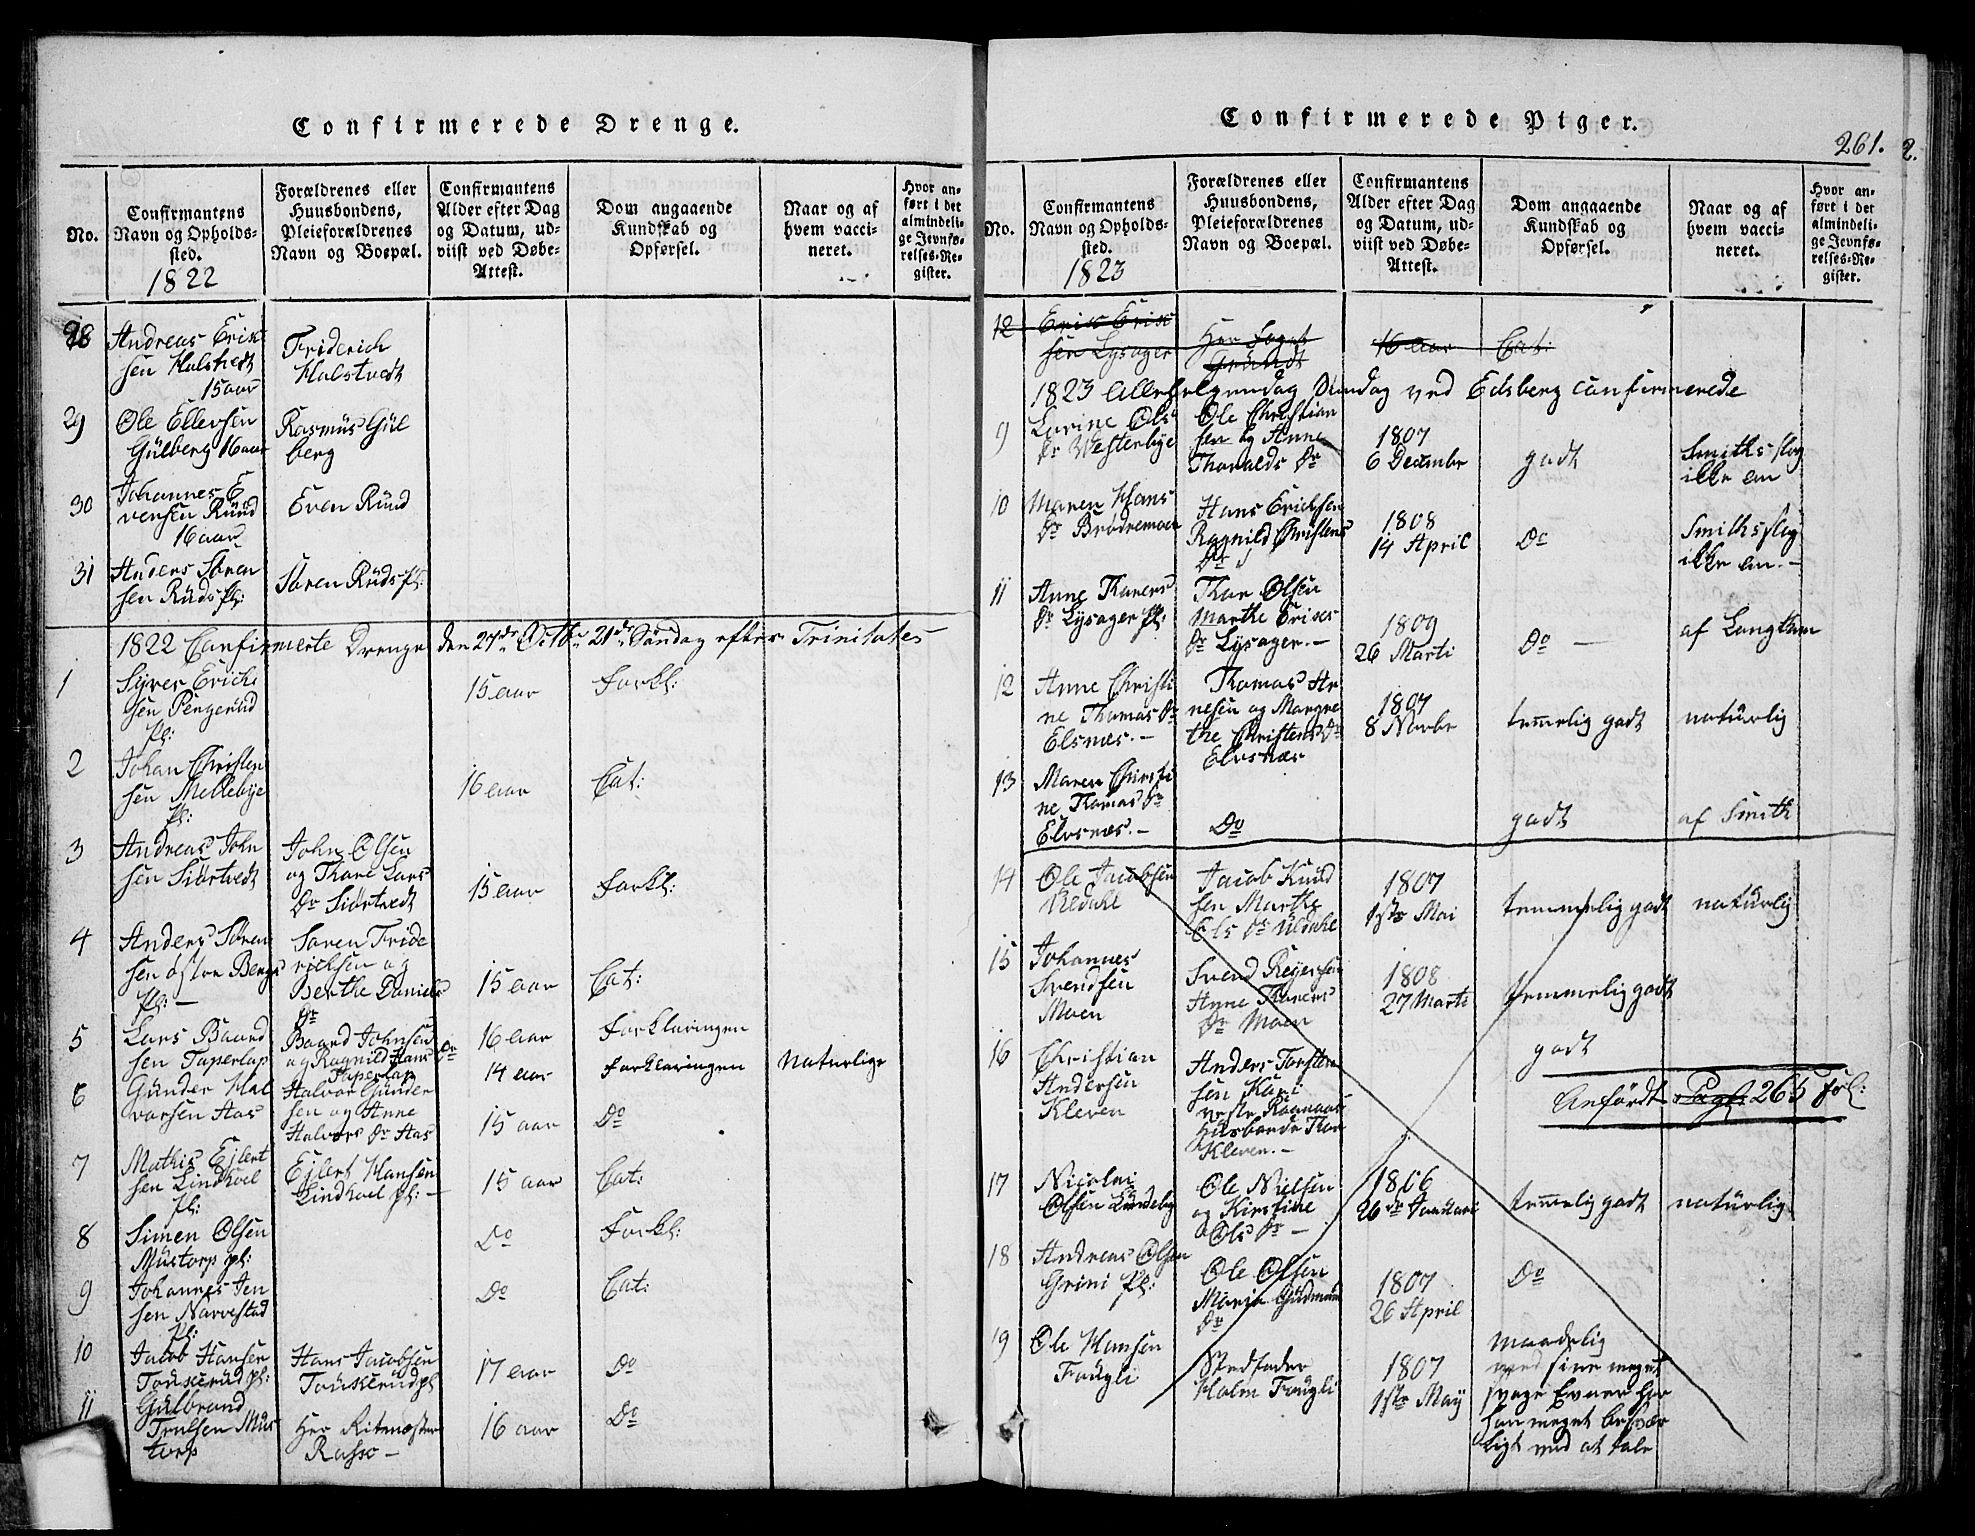 Confirmerede Drenge.
No.
Confirmantens
Navn og Opholds-
sted.
1822
Forældrenes eller
Huusbondens,
Pleieforældrenes
Navn og Boepæl.
Confirmantens
Alder efter Dag
og Datum, ud-
viist ved Døbe-
Attest.
Dom angaaende
Kundskab og
Opførsel.
Naar og af
hvem vacci-
neret.
Hvor an-
ført i det
almindeli-
ge Jevnfø-
relses-Re-
gister.
28 Andreas Erik
sen Kalstvedt
15 aar
Friderich
Kalstvedt
29 Ole Ellevsen
Gülberg 16 aar
Rasmüs Gül
berg
30 Johannes E
vensen Rüud
16 aar
Even Rüud
31 Anders Søren
sen Rüds Pl:
Søren Rüds Pl:
1822 Confirmerte Drenge den 27de Octbr 21de Søndag efter Trinitates
1 Siver Erick
sen Pengerüd
Pl:
15 aar Forkl:
2 Johan Christen
sen Mellebÿe
Pl:
16 aar Cat:
3 Andreas John
sen Siørtvedt
John Olsen
og Thore Lars
Dr Siørtvedt
15 aar Forkl:
4 Anders Søren
sen østre Bergs
Pl: —
Søren Fride
richsen og
Berthe Daniels
Dr
15 aar Cat:
5 Lars Baard
sen Taperlap
Baard Johnsen
og Ragnild Hans Dr
Taperlap
16 aar Forklaringen
14 aar Forklaringen Naturlige
6 Günder Hal
varsen Aas
Halvor Günder
sen og Anne
Halvors Dr Aas
15 aar Do
7 Mathis Ejlert
sen Lindhoel
Pl:
Ejlert Hansen
Lindhoel Pl: —
15 aar Cat:
8 Simen Olsen
Müstorp pl:
Do Forkl:
9 Johannes Jen
sen Narvestad
Pl:
Do Cat:
10 Jacob Hansen
Touserud pl:
Hans Jacobsen
Touserud pl
17 aar Do
11 Gulbrand
Truelsen Müs
torp
Her Ritmester
Rasso —
16 aar Do
Confirmerede Piger.
261.
2.
No.
Confirmantens
Navn og Opholds-
sted.
1823
Forældrenes eller
Huusbondens,
Pleieforældrenes
Navn og Boepæl.
Confirmantens
Alder efter Dag
og Datum, ud-
viist ved Døbe-
Attest.
Dom angaaende
Kundskab og
Opførsel.
Naar og af
hvem vacci-
neret.
Hvor an-
ført i det
almindeli-
ge Jevnfø-
relses-Re-
gister.
12 Erik Erik
sen Lysager
Her Foget
Gründt
16 aar Cat:
1823 Allehelgensdag Søndag ved Edsberg Confirmerede
9 Lovine Ols
Dr Westerbÿe
Ole Christian
sen og Anne
Thoralds Dr
1807
6 Decembr
godt
Smiths slog
ikke an
10 Maren Hans
Dr Brødremoen
Hans Ericksen
Ragnild Christens
Dr
1808
14 April
Do
Smiths slog
ikke an. —
11 Anne Thorers
Dr Lÿsager Pl:
Thor Olsen
Marthe Erices
Dr Lysager. —
1809
26 Marti
Do —
af Langthun
12 Anne Christi
ne Thomas Dr
Elsnæs. —
Thomas Ar
nesen og Margre
the Christens Dr
Elvsnæs
1807
8 Novbr
temmelig godt
naturlig
13 Maren Christi
ne Thomas Dr
Elvsnæs. —
Do
godt
af Smith
14 Ole Jacobsen
Uldahl
Jacob Knud
sen Marthe
Ols Dr Üldahle
1807
1ste Mai
temmelig godt
naturlig
15 Johannes
Svendsen
Moen
Svend Reÿersen
Anne Thorers
Dr Moen
1808
27 Marti
temmelig godt
16 Christian
Andersen
Kleven
Anders Torsten
sen Kari
Husbonde Thor
Kleven. —
godt
Anfördt Pagt 265 Fol:
17 Nicolai
Olsen Lundeby
Ole Nielsen
og Kirstine
Ols Dr —
1806
26de Januari
temmelig godt
naturlig
18 Andreas Olsen
Grini Pl:
Ole Olsen
Maria Gudmun
Dr
1807
26 April
Do
19 Ole Hansen
Fougli
Stedfader
Holm Fougli
1807
1ste Maÿ
maadelig
med sine meget
svage Evner har
han meget besvær
ligt ved at tale